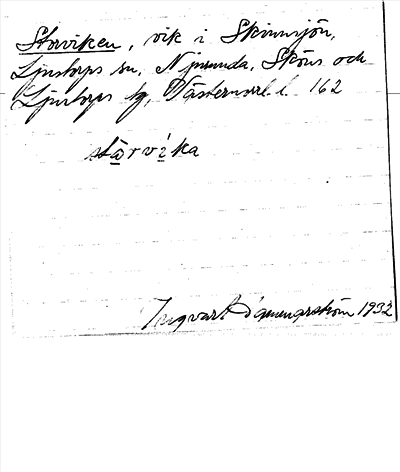 Storviken, vik i Skinnsjön,
Ljustorps sn, Njurunda, Sköns och
Ljustorps tg, Västernorrl. l. 162
stårvika
Ingvar Dammarström 1932